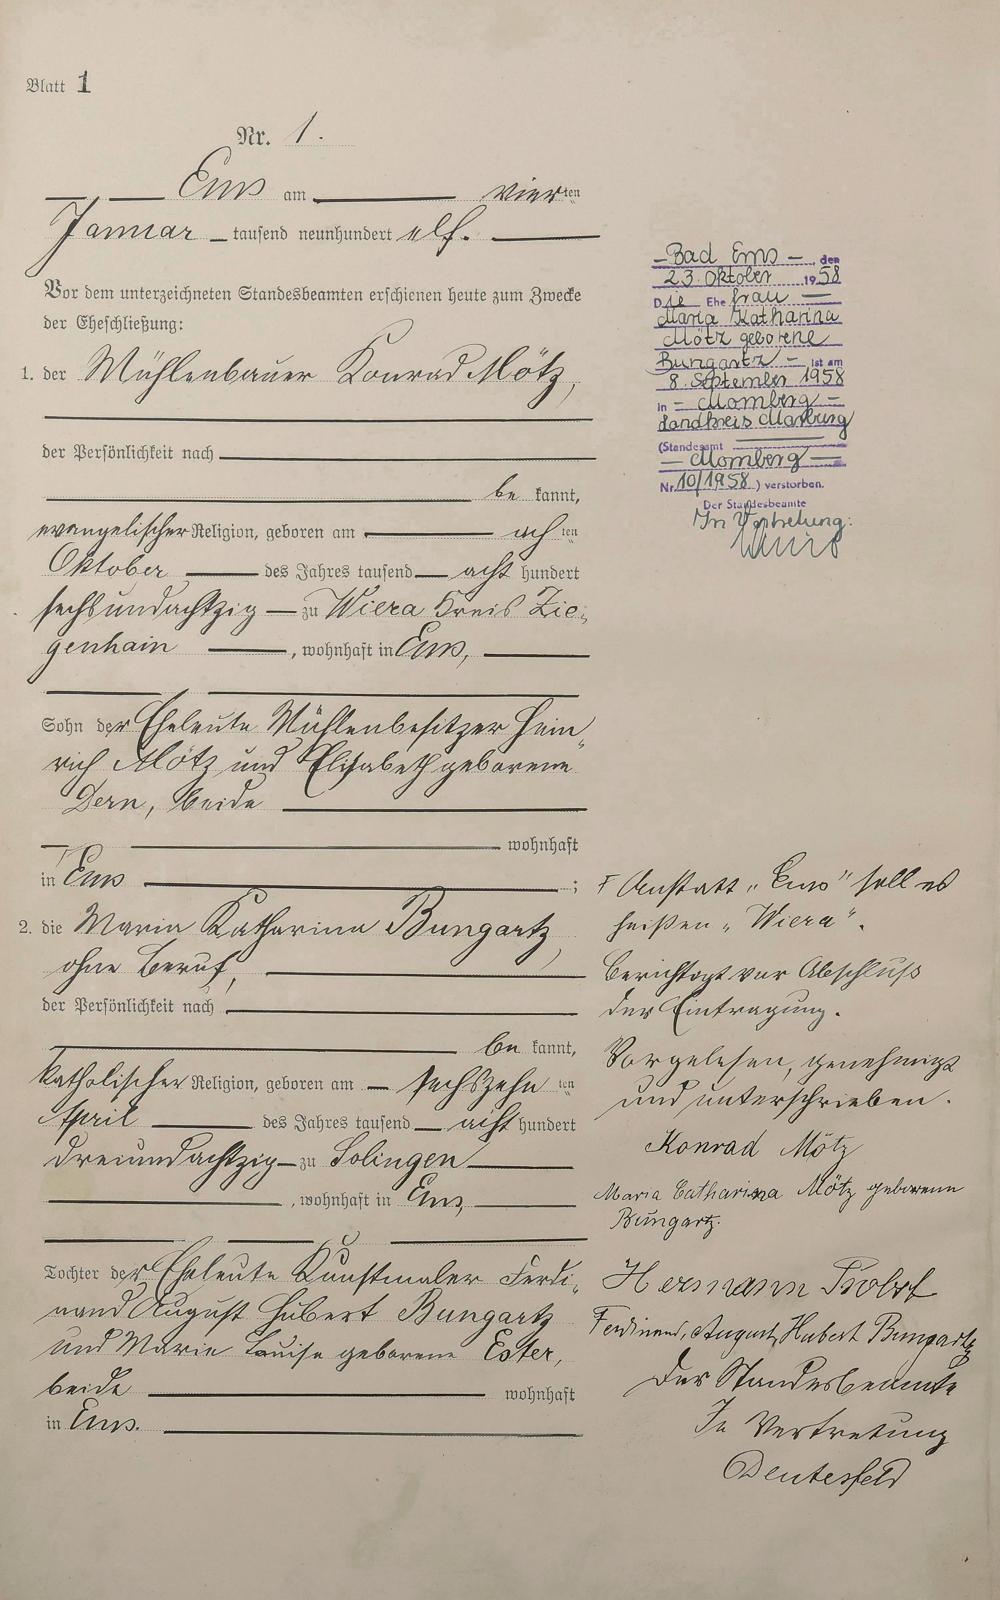 Blatt 1
Nr. 1.
Ems am vierten
Januar tausend neunhundert elf.
Vor dem unterzeichneten Standesbeamten erschienen heute zum Zwecke
der Eheschließung:
1. der Mühlenbauer Konrad Mötz,
der Persönlichkeit nach
be kannt,
evangelischer Religion, geboren am achten
Oktober des Jahres tausend acht hundert
sechsundachtzig zu Wiera Kreis Zie-
genhain, wohnhaft in Ems,
Sohn der Eheleute Mühlenbesitzer Hein-
rich Mötz und Elisabeth geborene
Dern, beide
wohnhaft
in Ems ;
2. die Maria Katharina Bungartz,
ohne Beruf,
der Persönlichkeit nach
be kannt,
katholischer Religion, geboren am sechszehnten
April des Jahres tausend acht hundert
dreiundachtzig zu Solingen
, wohnhaft in Ems,
Tochter der Eheleute Kunstmaler Ferdi-
nand August Hubert Bungartz
und Marie Luise geborene Ester,
beide wohnhaft
in Ems.
Bad Ems, den
23. Oktober 1958
Die Ehefrau
Maria Katharina
Mötz geborene
Bungartz ist am
8. September 1958
in Momberg
Landkreis Marburg
(Standesamt
Momberg
Nr. 10/1958) verstorben.
Der Standesbeamte
In Vertretung:
Anstatt „Ems" soll es
heißen „Wiera".
Berichtigt vor Abschluss
der Eintragung.
Vorgelesen, genehmigt
und unterschrieben.
Konrad Mötz
Maria Catharina Mötz geborene
Bungartz.
Hermann
Ferdinand, August, Hubert Bungartz
Der Standesbeamte
In Vertretung